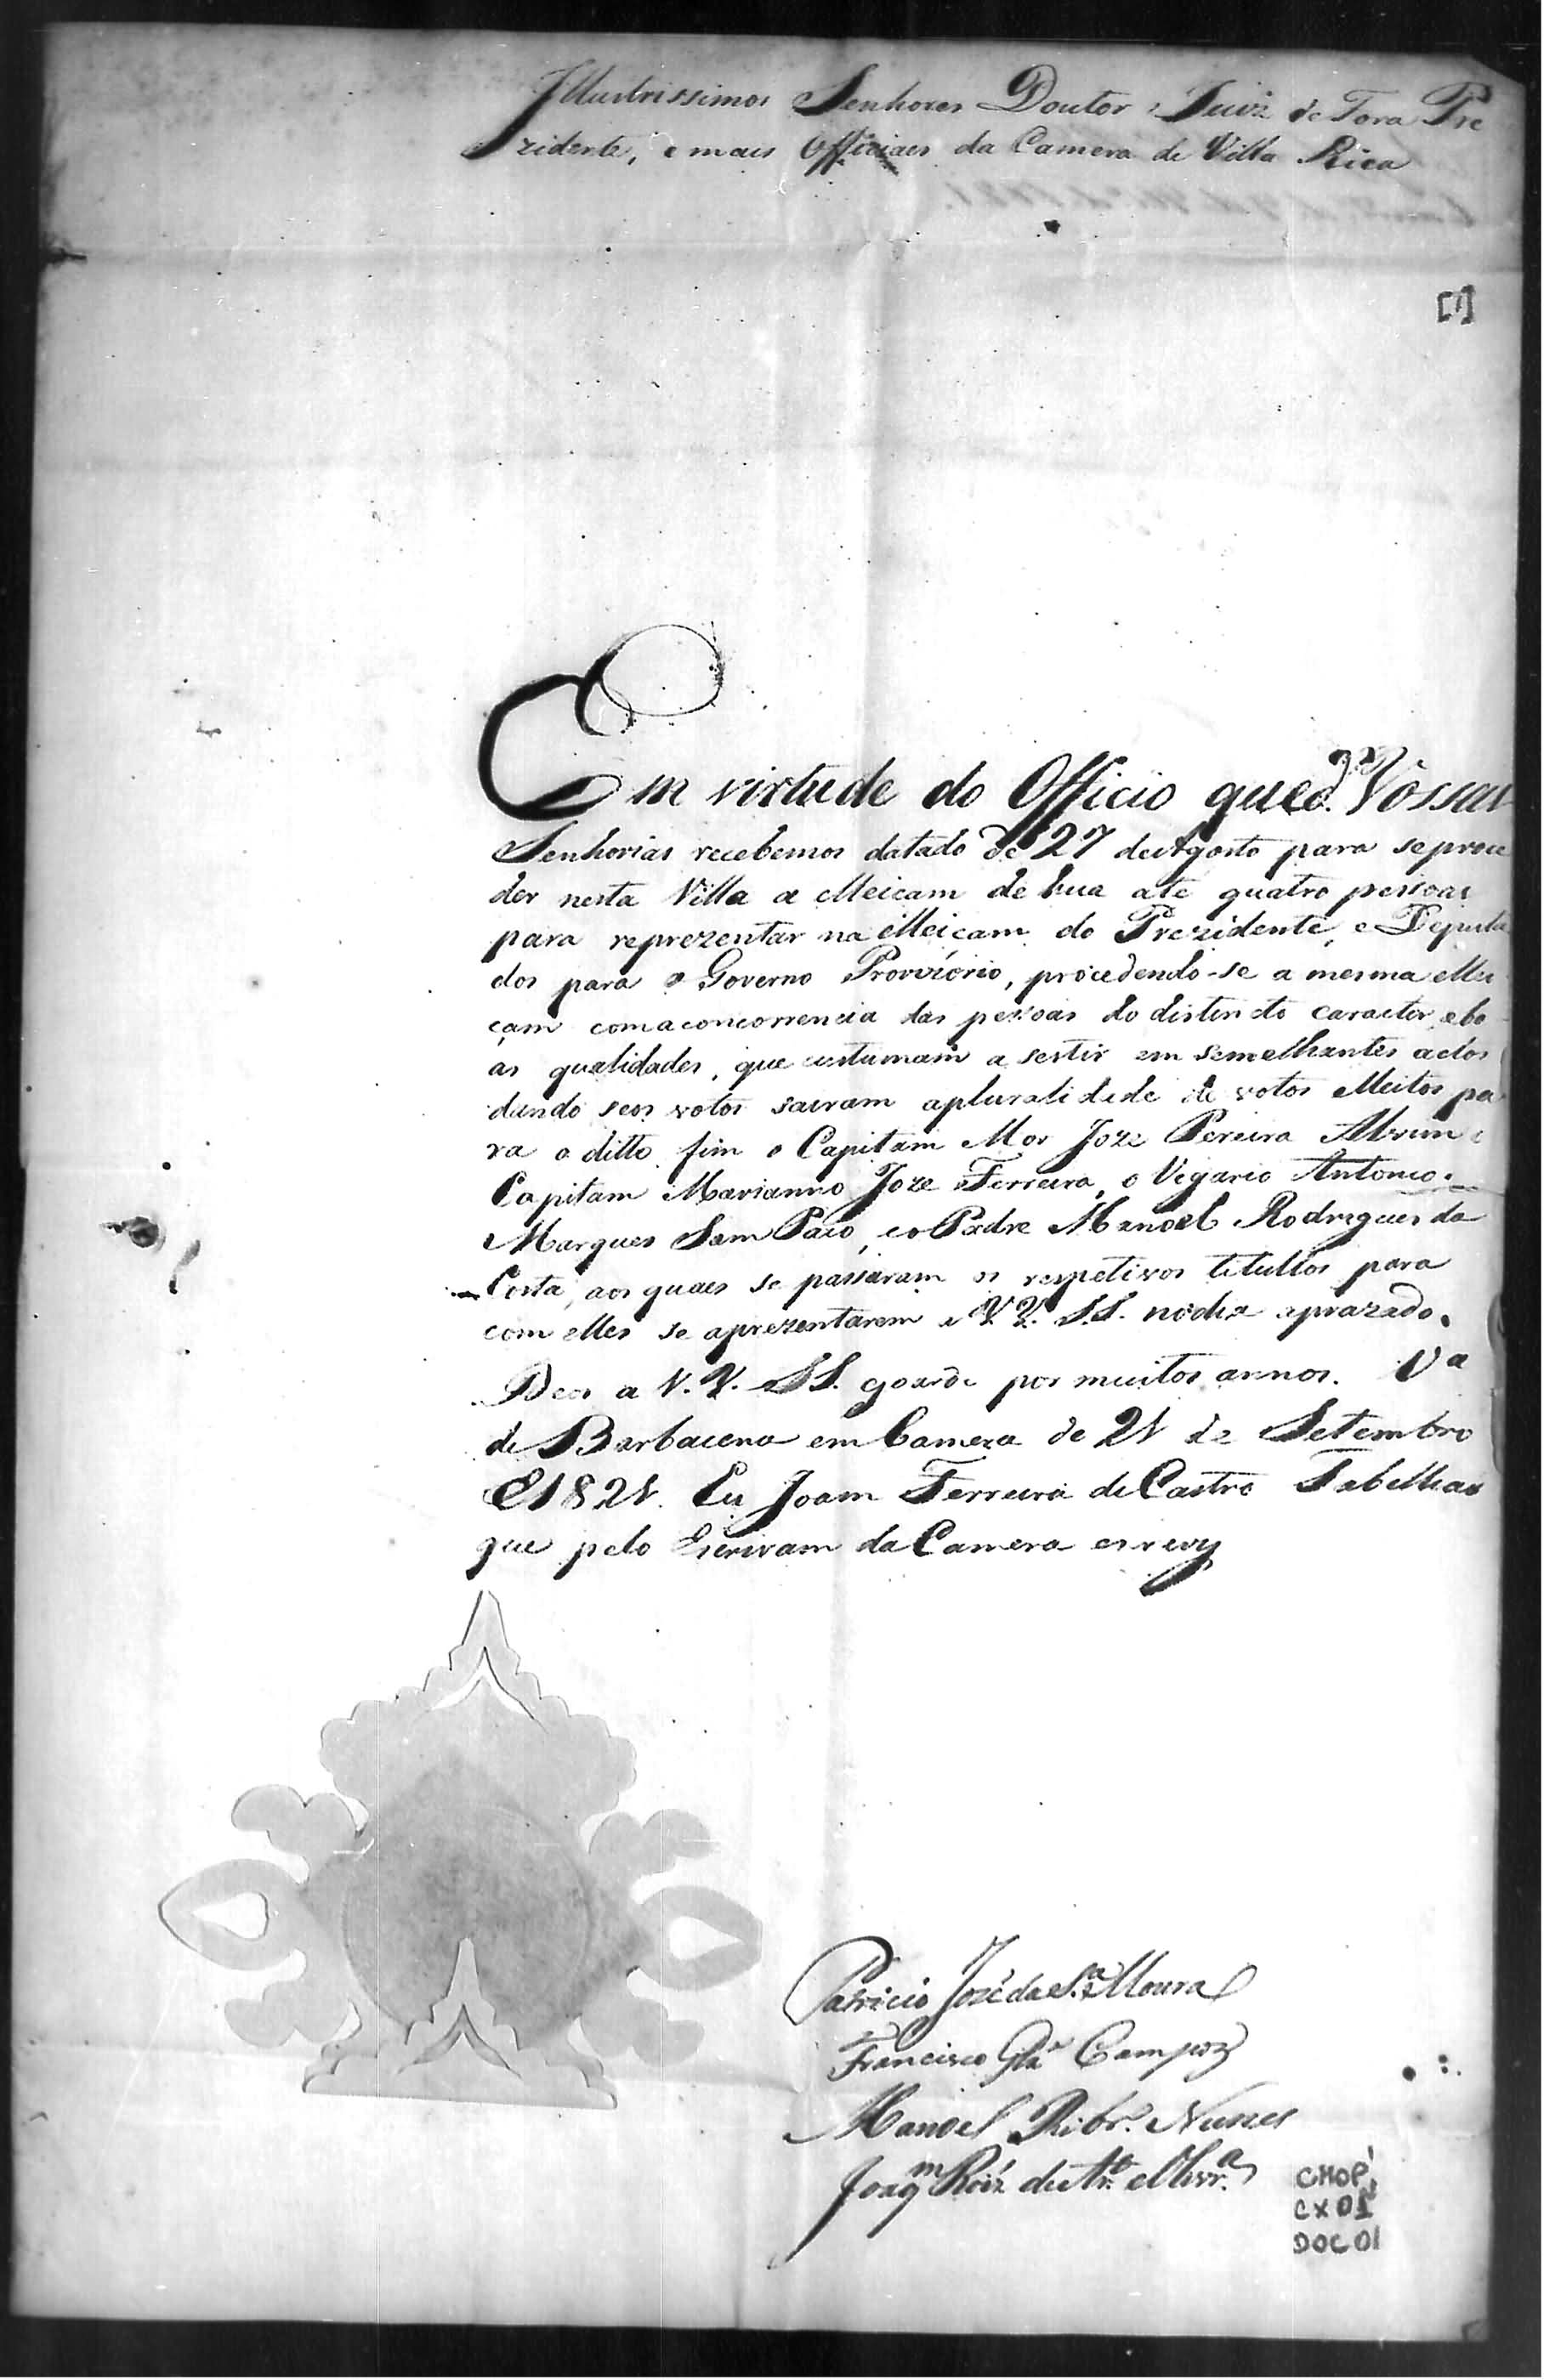 Illustrissimos Senhores Doutor Juiz de Fora Pre
zidente, e mais Officiaes da Camera de Villa Rica
[1]
Em virtude do Officio que de Vossas
Senhorias recebemos datado de 27 de Agosto para se proce
der nesta Villa a elleicam de hua ate quatro pessoas
para reprezentar na elleicam do Prezidente, e Deputa
dos para o Governo Provizório, procedendo-se a mesma ellei
çam com a concorrencia das pessoas do distincto caracter, e bo
as qualidades, que custumam a sestir em semelhantes actos
dando seos votos sairam a pluralidade de votos elleitos pa
ra o ditto fim o Capitam Mor Joze Pereira Alvim o
Capitam Marianno Joze Ferreira, o Vigario Antonio
Marques Sam Paio, e o Padre Manoel Rodrigues da
Costa, aos quaes se passaram os respetivos titullos para
com elles se aprezentarem a V.V. S.S. no dia aprazado.
Deos a V.V. SS. goarde por muitos annos. Vª
de Barbacena em Camera de 21 de Setembro
1821. Eu Joam Ferreira de Castro Tabelliao
que pelo Escrivam da Camera escrevy
Patricio José da Sª Moura
Francisco Campos
Manoel Ribrº Nunes
Joaqm Roiz de
CMOP
CX 01
DOC 01